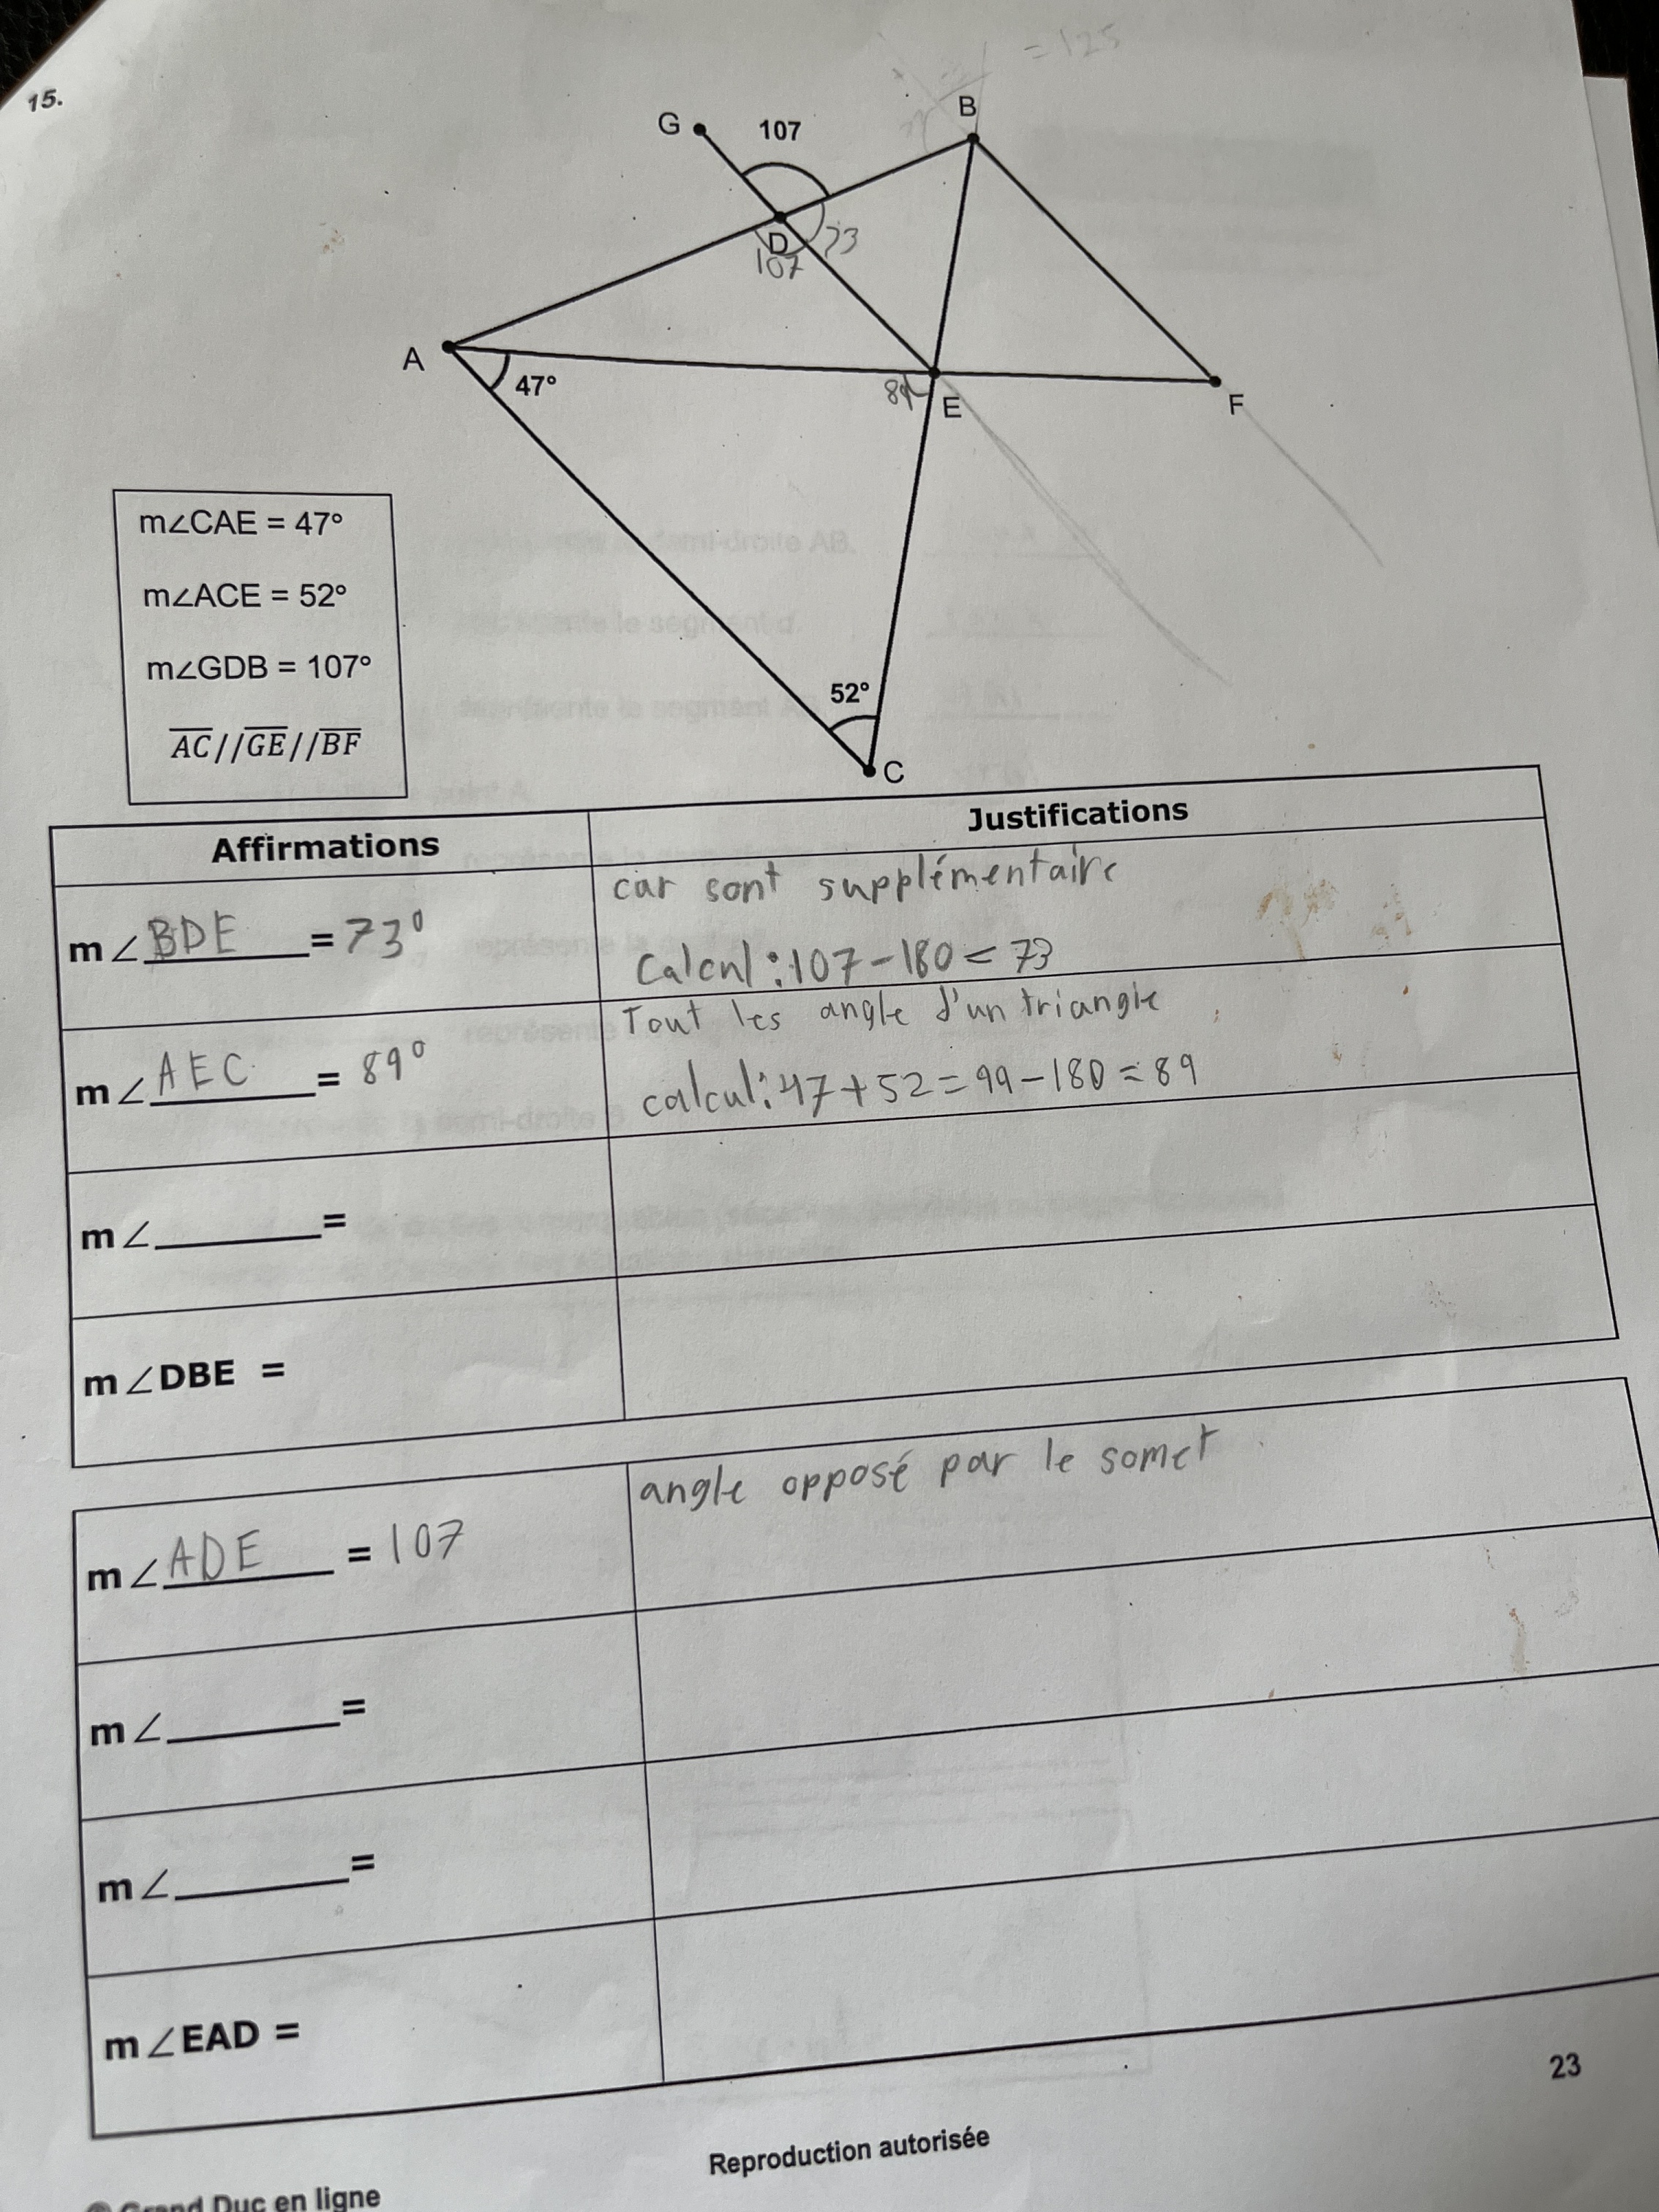 15.
= 125
G
107
B
D
73
107
A
47°
89
E
F
m∠CAE = 47°
m∠ACE = 52°
m∠GDB = 107°
AC//GE//BF
52°
C
Affirmations
Justifications
m∠BDE = 73°
car sont supplémentaire
Calcul: 107-180 = 73
m∠AEC = 89°
Tout les angle d'un triangle
calcul: 47+52=99-180=89
m∠______=
m∠DBE =
m∠ADE = 107
angle opposé par le somet
m∠______=
m∠______=
m∠EAD =
23
Reproduction autorisée
Grand Duc en ligne